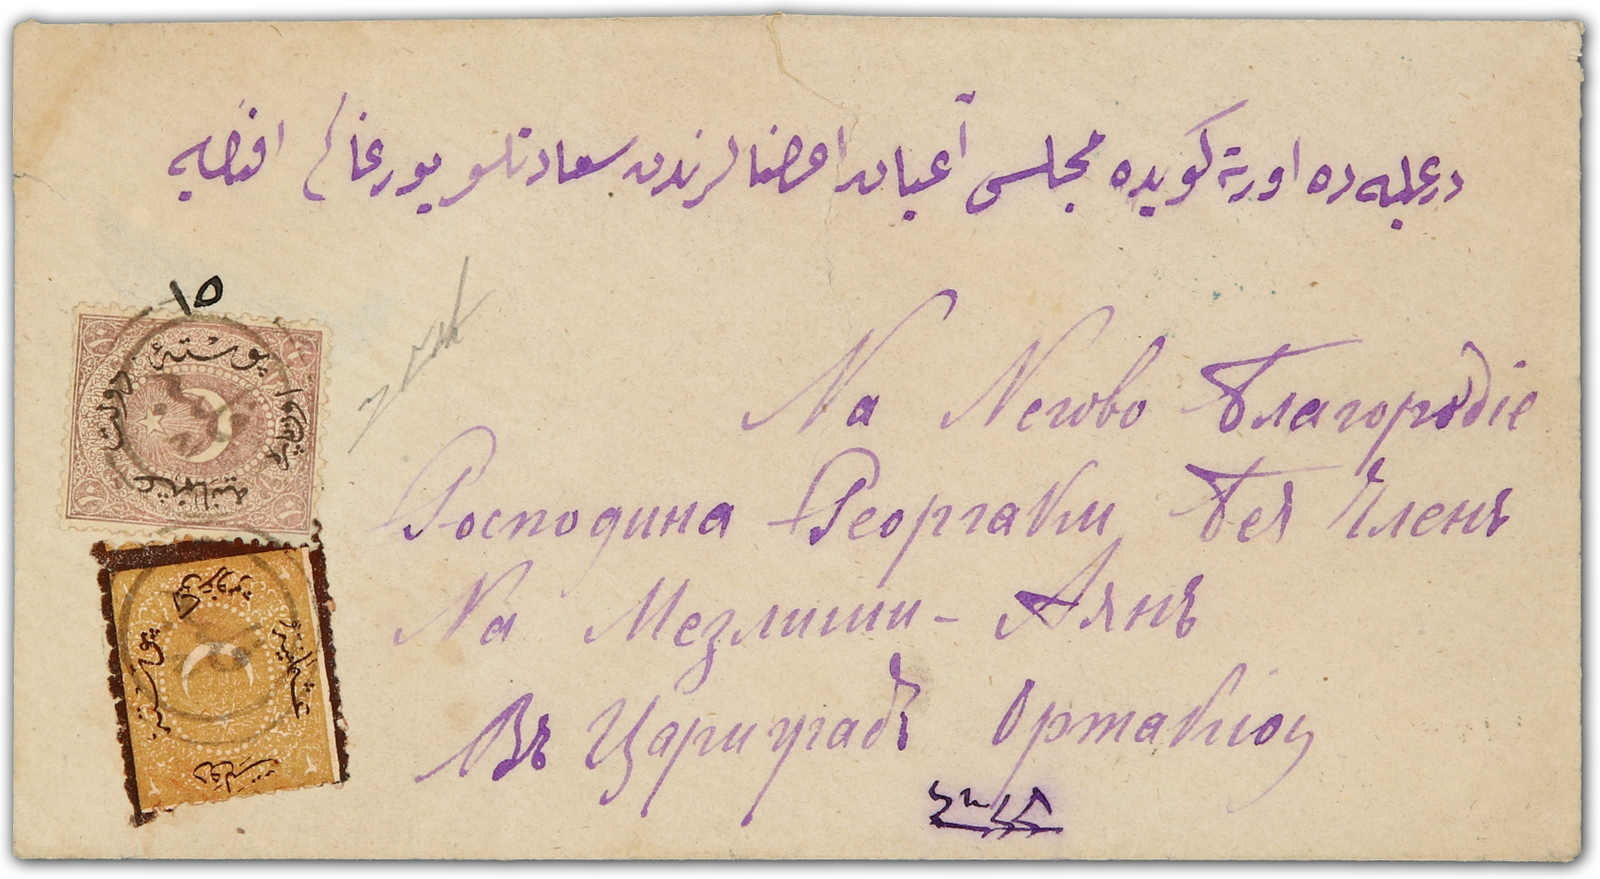 در علیه ده اورته کویده مجلس آعیان اعضالرندن سعادتلو یورغاکی افندیه
١٥
پوسته
دولت
عثمانیه
На Негово Благородіе
Господина Георгаки Бея Членъ
На Мезлиши-Аянъ
Въ Цариградъ Ортакіоу